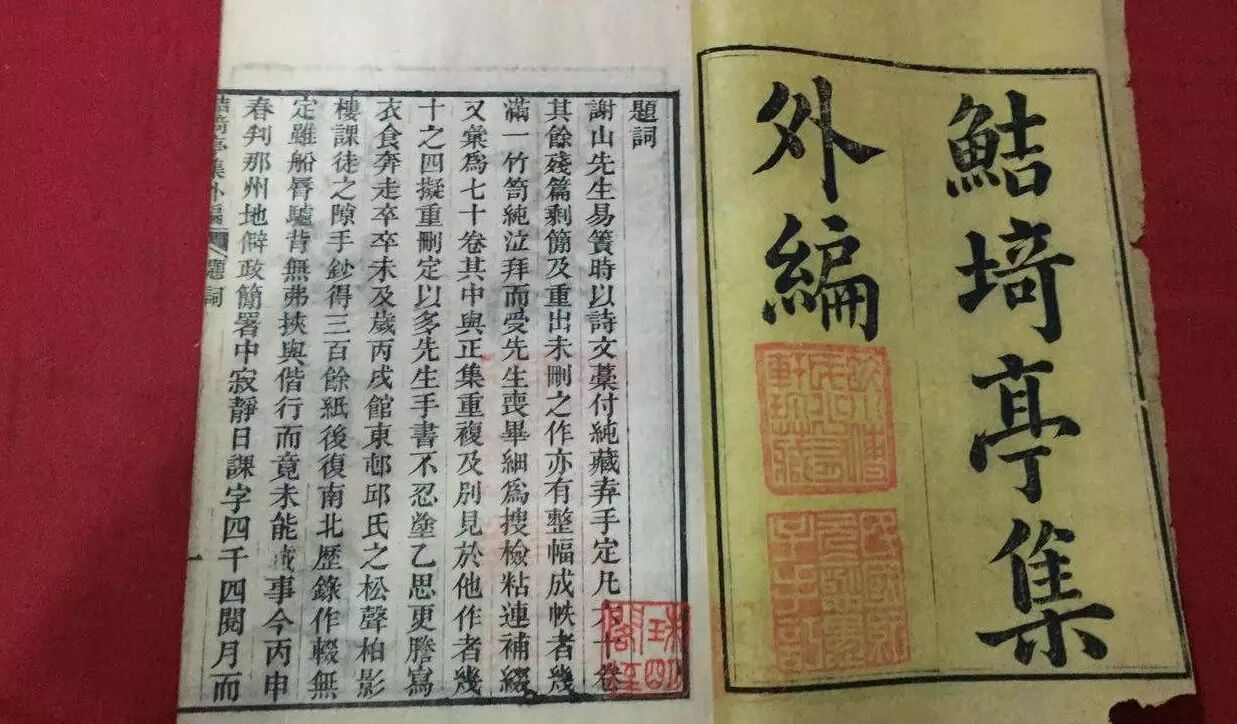 鮚埼亭集
外編
題詞
謝山先生易簀時以詩文藁付純藏弆手定凡六十卷
其餘殘篇剩簡及重出未刪之作亦有整幅成帙者幾
滿一竹笥純泣拜而受先生喪畢細爲搜檢粘連補綴
又彙爲七十卷其中與正集重複及別見於他作者幾
十之四擬重刪定以多先生手書不忍塗乙思更謄寫
衣食奔走卒卒未及歲丙戌館東邨邱氏之松聲柏影
樓課徒之隙手鈔得三百餘紙後復南北歷錄作輟無
定雖船脣驢背無弗挾與偕行而竟未能蕆事今丙申
春判那州地僻政簡署中寂靜日課字四千四閱月而
鮚埼亭集外編
題詞
一